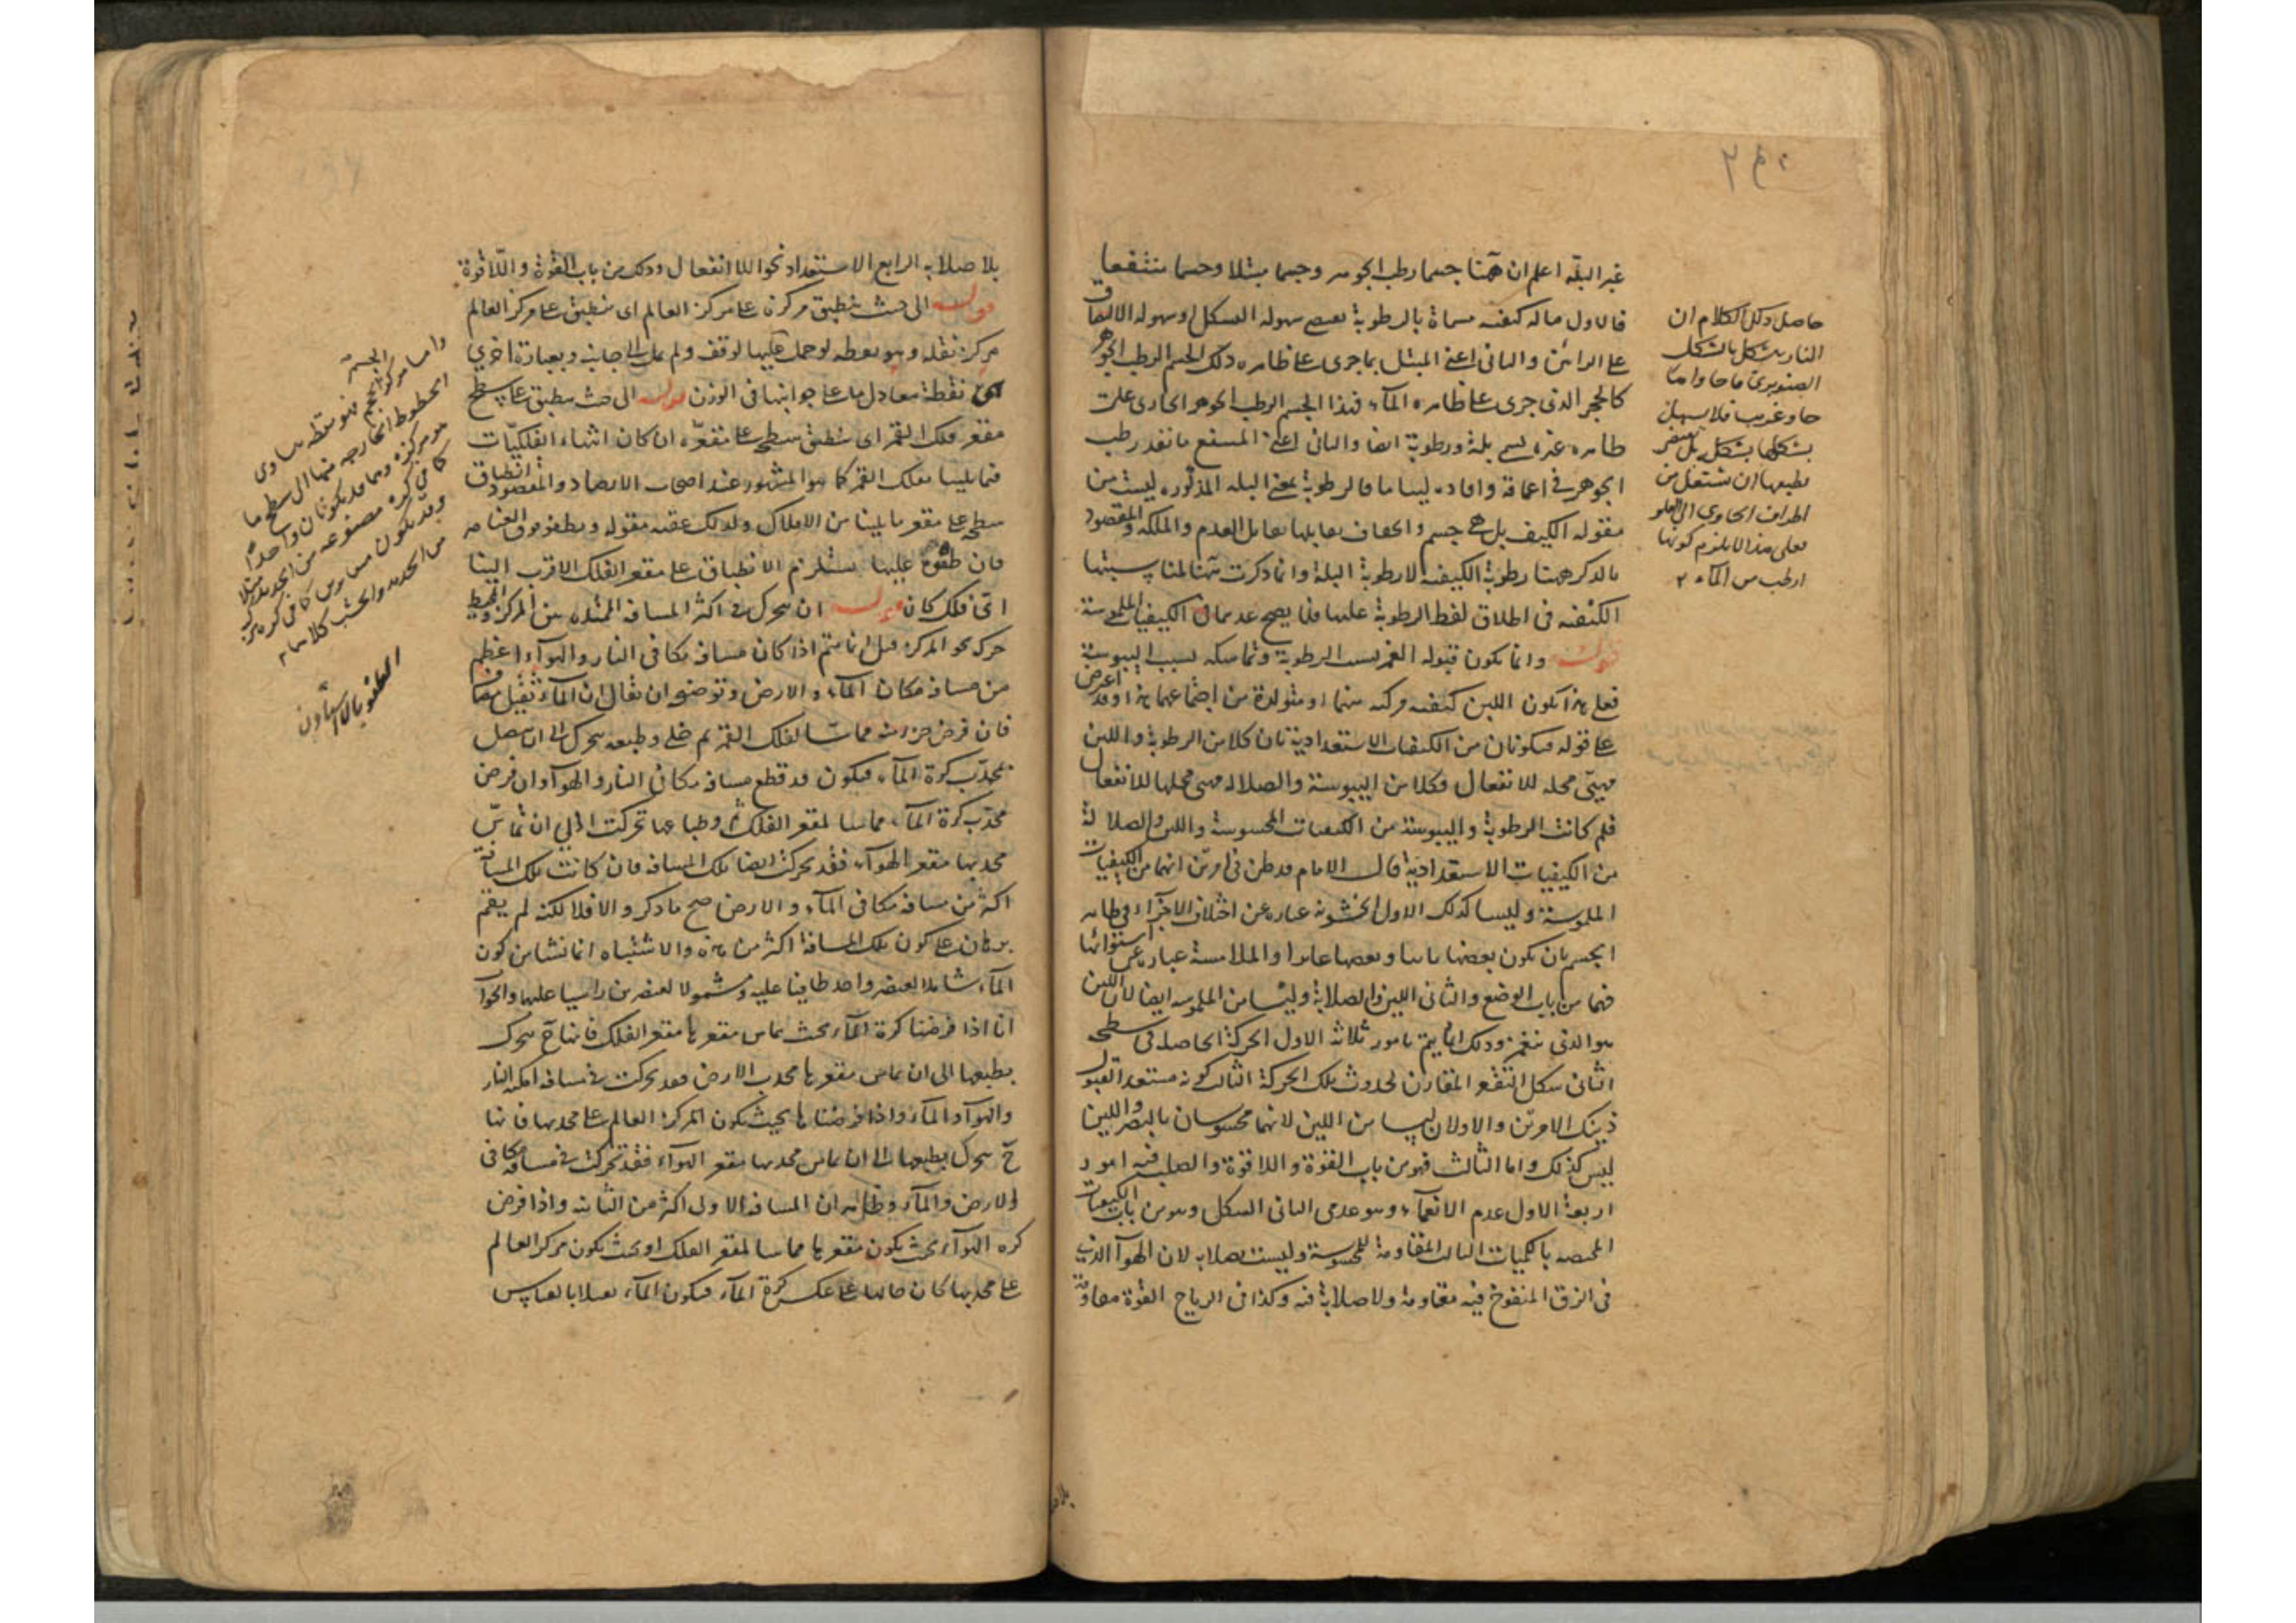 غير البلة اعلم ان ههنا جسما رطب الجوهر وجسما مبتلا وجسما منتقعا
فالاول ماله كيفية مسماة بالرطوبة سهولة التشكل وسهولة الالتصاق
على الرأيين والثاني اعني المبتل بما جرى على ظاهره ذلك الجسم الرطب الجوهر
كالحجر الذي جرى على ظاهره الماء فهذا الجسم الرطب الجوهر الجاري على
ظاهره غيره يسمى بلة ورطوبة ايضا والثاني اعني المنتقع ما نفذ رطب
الجوهر في اعماقه وافاده لينا ما فالرطوبة بمعنى البلة المذكورة ليست من
مقولة الكيف بل هي جسم والجفاف يقابلها تقابل العدم والملكة والمقصود
بالذكر ههنا رطوبة الكيفية لا رطوبة البلة وانما ذكرت ههنا لمناسبتها
الكيفية في اطلاق لفظ الرطوبة عليها فلا يصح عدهما من الكيفيات الملموسة
قوله وانما يكون قبوله الغمز بسبب الرطوبة وتماسكه بسبب اليبوسة
فعلى هذا يكون اللين كيفية مركبة منهما او متولدة من اجتماعهما هذا وقد اعرض
على قوله فيكونان من الكيفيات الاستعدادية بان كلا من الرطوبة واللين
مهيئ محله للانفعال وكلا من اليبوسة والصلابة مهيئ محلها للانفعال
فلم كانت الرطوبة واليبوسة من الكيفيات المحسوسة واللين والصلابة
من الكيفيات الاستعدادية قال الامام قد ظن في امرين انهما من الكيفيات
الملموسة وليسا كذلك الاول الخشونة عبارة عن اختلاف الاجزاء في ظاهر
الجسم بان يكون بعضها ناتيا وبعضها غائرا والملاسة عبارة عن استوائها
فهما من باب الوضع والثاني اللين والصلابة وليسا من الملموسة ايضا لان اللين
هو الذي ينغمز وذلك انما يتم بامور ثلاثة الاول الحركة الحاصلة في سطحه
الثاني شكل التقعر المقارن لحدوث تلك الحركة الثالث كونه مستعدا لقبول
ذينك الامرين والاولان ليسا من اللين لانهما محسوسان بالبصر واللين
ليس كذلك واما الثالث فهو من باب القوة واللاقوة والصلب فيه امور
اربعة الاول عدم الانغماز وهو عدمي الثاني الشكل وهو من باب الكيفيات
المختصة بالكميات الثالث المقاومة المحسوسة وليست بصلابة لان الهواء الذي
في الزق المنفوخ فيه مقاومة ولا صلابة فيه وكذا في الرياح القوية مقاومة
حاصل ذلك الكلام ان
النار يتشكل بالشكل
الصنوبري
حاو غريب فلا يسهل
بشكلها بشكل بل
بطبعها ان تشتعل من
اطراف الحاوي الى العلو
فعلى هذا لا يلزم كونها
ارطب من الماء
بلا صلابة الرابع الاستعداد نحو اللاانفعال وذلك من باب القوة واللاقوة
قوله الى حيث ينطبق مركزه على مركز العالم اي ينطبق على مركز العالم
مركز ثقله وهو نقطة لو حمل عليها لوقف ولم يمل الى جانب وبعبارة اخرى
هي نقطة يتعادل ما على جوانبها في الوزن قوله الى حيث ينطبق على سطح
مقعر فلك القمر اي ينطبق سطحه على مقعره ان كان انتهاء الفلكيات
فيما يلينا بفلك القمر كما هو المشهور عند اصحاب الارصاد والمقصود انطباق
سطحه على مقعر ما يلينا من الافلاك ولذلك عقبه بقوله ويطفو فوق العناصر
فان طفوه عليها يستلزم الانطباق على مقعر الفلك الاقرب الينا
اي فلك كان قوله ان يتحرك في اكثر المسافة الممتدة بين المركز والمحيط
حركة نحو المركز قيل انما يتم اذا كان مسافة مكاني النار والهواء اعظم
من مسافة مكان الماء والارض وتوضيحه ان يقال ان الماء ثقيل مضاف
فان فرض جزء منه مماسا لفلك القمر ثم خلي وطبعه يتحرك الى ان يتصل
بمحدب كرة الماء فيكون قد قطع مسافة مكاني النار والهواء وان فرض
محدب كرة الماء مماسا لمقعر الفلك ثم وطباعها تحركت الى ان تماس
محدبها مقعر الهواء فقد تحركت ايضا تلك المسافة فان كانت تلك المسافة
اكثر من مسافة مكاني الماء والارض صح ما ذكر والا فلا لكنه لم يقم
برهان على كون تلك المسافة اكثر من هذه والاشتباه انما نشا من كون
الماء شاملا لعنصر واحد طافيا عليه ومشمولا لعنصرين راسبا عليهما والجواب
انا اذا فرضنا كرة الماء بحيث يماس مقعرها مقعر الفلك فانها ح يتحرك
بطبعها الى ان يماس مقعرها محدب الارض فقد تحركت في مسافة امكنة النار
والهواء والماء واذا فرضناها بحيث يكون المركز العالم على محدبها فانها
ح يتحرك بطبعها الى ان يماس محدبها مقعر الهواء فقد تحركت في مسافة مكاني
الارض والماء وظاهر ان المسافة الاولى اكثر من الثانية واذا فرض
كرة الهواء بحيث يكون مقعرها مماسا لمقعر الفلك او بحيث يكون مركز العالم
على محدبها كان حالها على عكس كرة الماء فيكون الماء ثقيلا بالقياس
واما مركز الحجم فهو نقطة يتساوى
الخطوط الخارجة منها الى سطح ما
هو مركزه وهما قد يكونان واحدا
كما في كرة مصنوعة من الحديد مثلا
وقد يكون متغايرين كما في كرة
من الحديد والخشب كلاهما